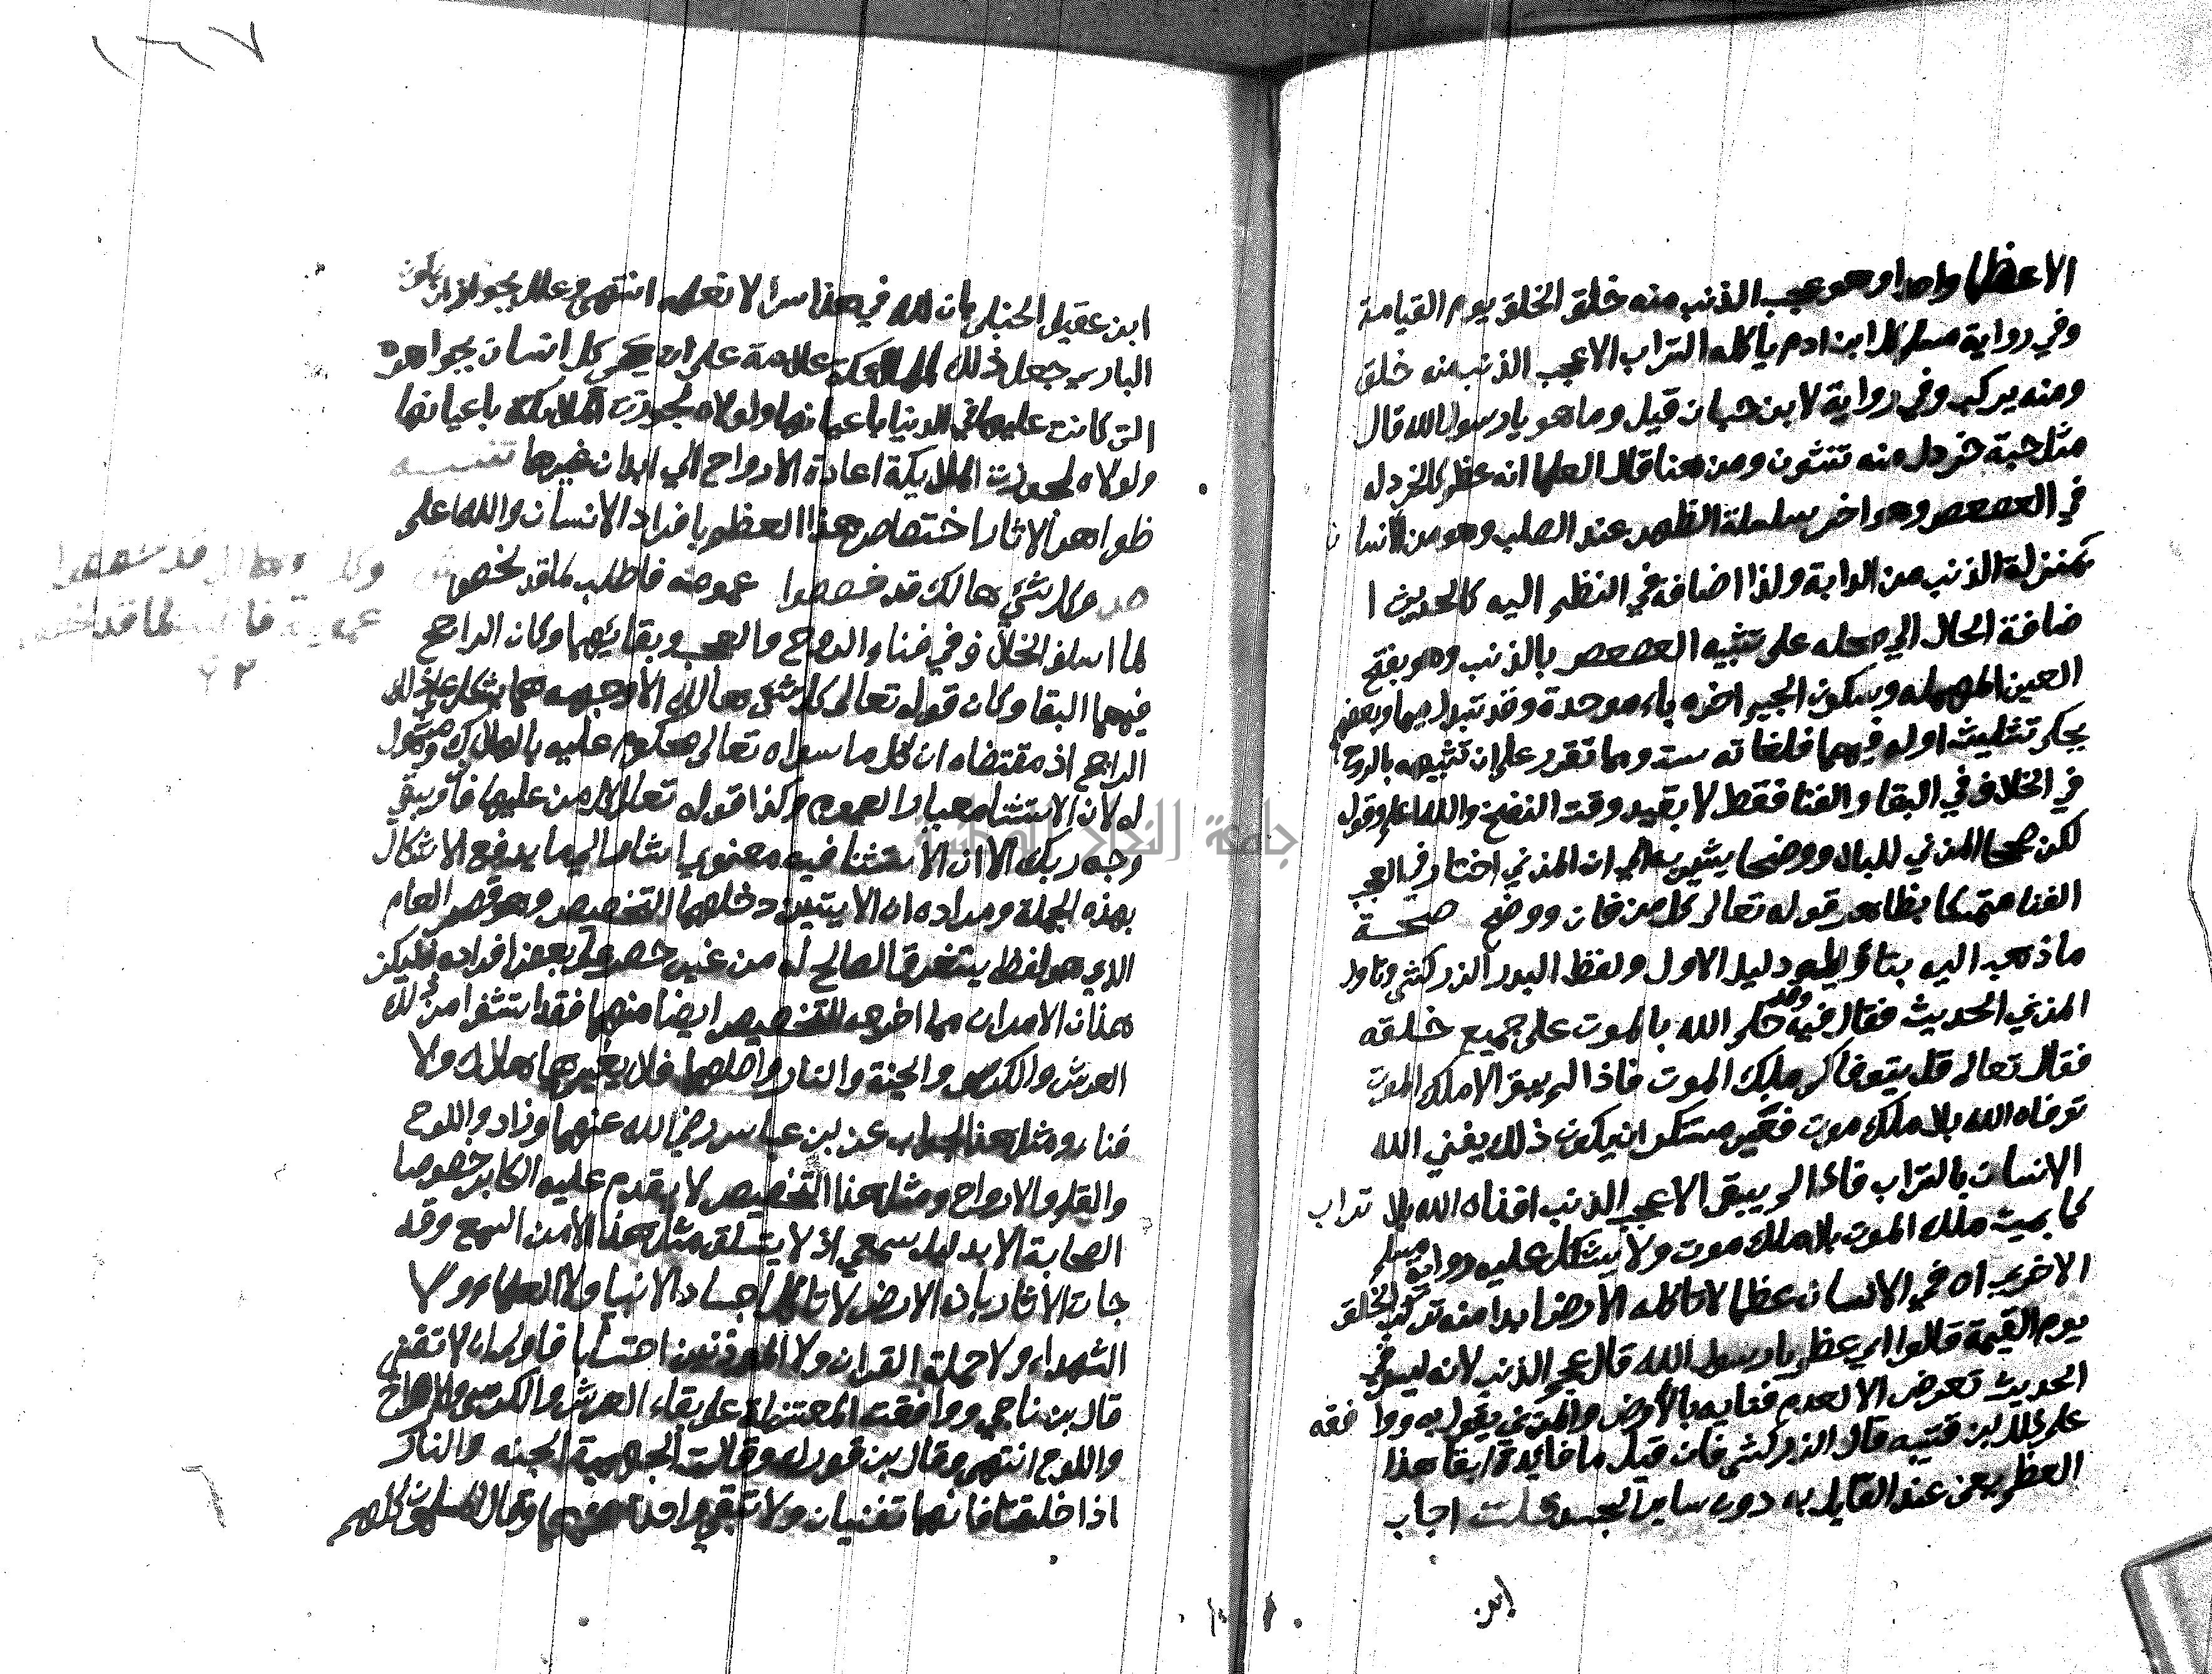 الاعظما واحدا وهو عجب الذنب منه خلق الخلق يوم القيامة
وفي رواية مسلم كل ابن ادم ياكله التراب الا عجب الذنب منه خلق
ومنه يركب وفي رواية لابن حبان قيل وما هو يا رسول الله قال
مثل حبة خردل منه تنشون ومن هنا قال العلما انه عظم كالخردله
في العصعص وهو اخر سلسلة الظهر عند الصلب وهو من الانسان
بمنزلة الذنب من الدابة ولذا اضافه في النظم اليه كالحديث ا
ضافة الحال الي محله على تشبيه العصعص بالذنب وهو بفتح
العين المهمله وسكون الجيم اخره باء موحدة وقد تبدل ميما وبعضهم
يحكي تثليث اوله فيهما فلغاته ست ومما تقرر على ان تشبيهه بالروح
في الخلاف في البقا والفنا فقط لا بقيد وقت النفخ والله اعلم وقوله
لكن صححا المزني للبال ووضحا يشير به الي ان المزني اختار في العجب
الفنا متمسكا بظاهر قوله تعالى كل من فان ووضح صحة
ما ذهب اليه بتاويله دليل الاول ولفظ البدر الزركشي وتاول
المزني الحديث فقال فيه وقد حكم الله بالموت على جميع خلقه
فقال تعالى قل يتوفاكم ملك الموت فاذا لم يبق الا ملك الموت
توفاه الله بلا ملك موت فغير مستنكر ان يكون ذلك يفني الله
الانسان بالتراب فاذا لم يبق الا عجب الذنب افناه الله بلا تراب
كما يميت ملك الموت بلا ملك موت ولا يشكل عليه رواية مسلم
الاخرى ان في الانسان عظما لا تاكله الارض ابدا منه تركب الخلق
يوم القيمة قالوا اي عظم يا رسول الله قال عجب الذنب لانه ليس في
الحديث تعرض الا لعدم فنايه بالارض والمزني يقول به ووافقه
على ذلك بن قتيبه قال الزركشي فان قيل ما فائدة ابقا هذا
العظم يعني عند القايل به دون ساير الجسد قلت اجاب
ابن
١٦٧
ابن عقيل الحنبلي بان لله في هذا سرا لا نعلمه انتهى وعلل بجواز ان يكون
الباري جعل ذلك للملائكة علامة على ان يحيى كل انسان بجواهره
التي كانت عليها في الدنيا باعيانها ولولاه لجوزت الملائكة باعيانها
ولولاه لجوزت الملايكة اعادة الارواح الي ابدان غيرها تنبيه
ظواهر الاثار اختصاص هذا العظم بافراد الانسان والله اعلى
ص وكل شئ هالك قد خصصوا عمومه فاطلب لما قد لخصوا
لما اسلف الخلاف في فناء الروح والعجب وبقائهما وكان الراجح
فيهما البقا وكان قوله تعالى كل شئ هالك الا وجهه مما يشكل على ذلك
الراجح اذ مقتضاه ان كل ما سواه تعالى محكوم عليه بالهلاك وشمول
له لان الاستثنا معيار العموم وكذا قوله تعالى كل من عليها فان ويبقى
وجه ربك الا ان الاستثنا فيه معنوي اشار الي ما يدفع الاشكال
بهذه الجملة ومراده ان الايتين دخلهما التخصيص وهو قصر العام
الذي هو لفظ يستغرق الصالح له من غير حصر على بعض افراده فليكن
هذان الامران مما اخرجه التخصيص ايضا منهما فقد استثنوا من ذلك
العرش والكرسي والجنة والنار واهلهما فلا يعتريها هلاك ولا
فناء ومثل هذا الجواب عن بن عباس رضي الله عنهما وزاد واللوح
والقلم والارواح ومثل هذا التخصيص لا يقدم عليه اكابر خصوصا
الصحابة الا بدليل سمعي اذ لا يتلقى مثل هذا الا من السمع وقد
جات الاثار بان الارض لا تاكل اجساد الانبيا ولا العلماء ولا
الشهداء ولا حملة القران ولا الموذنين احتسابا فاولى ان لا تفنى
قال بن ناجي ووافقت المعتزلة على بقاء العرش والكرسي والارواح
واللوح انتهى وقال بن فورك وقالت الجهمية الجنه والنار
اذا خلقتا فانهما تفنيان ولا تبقى واحدة منهما وقال المسلمون كلهم
جامعة النجاح الوطنية